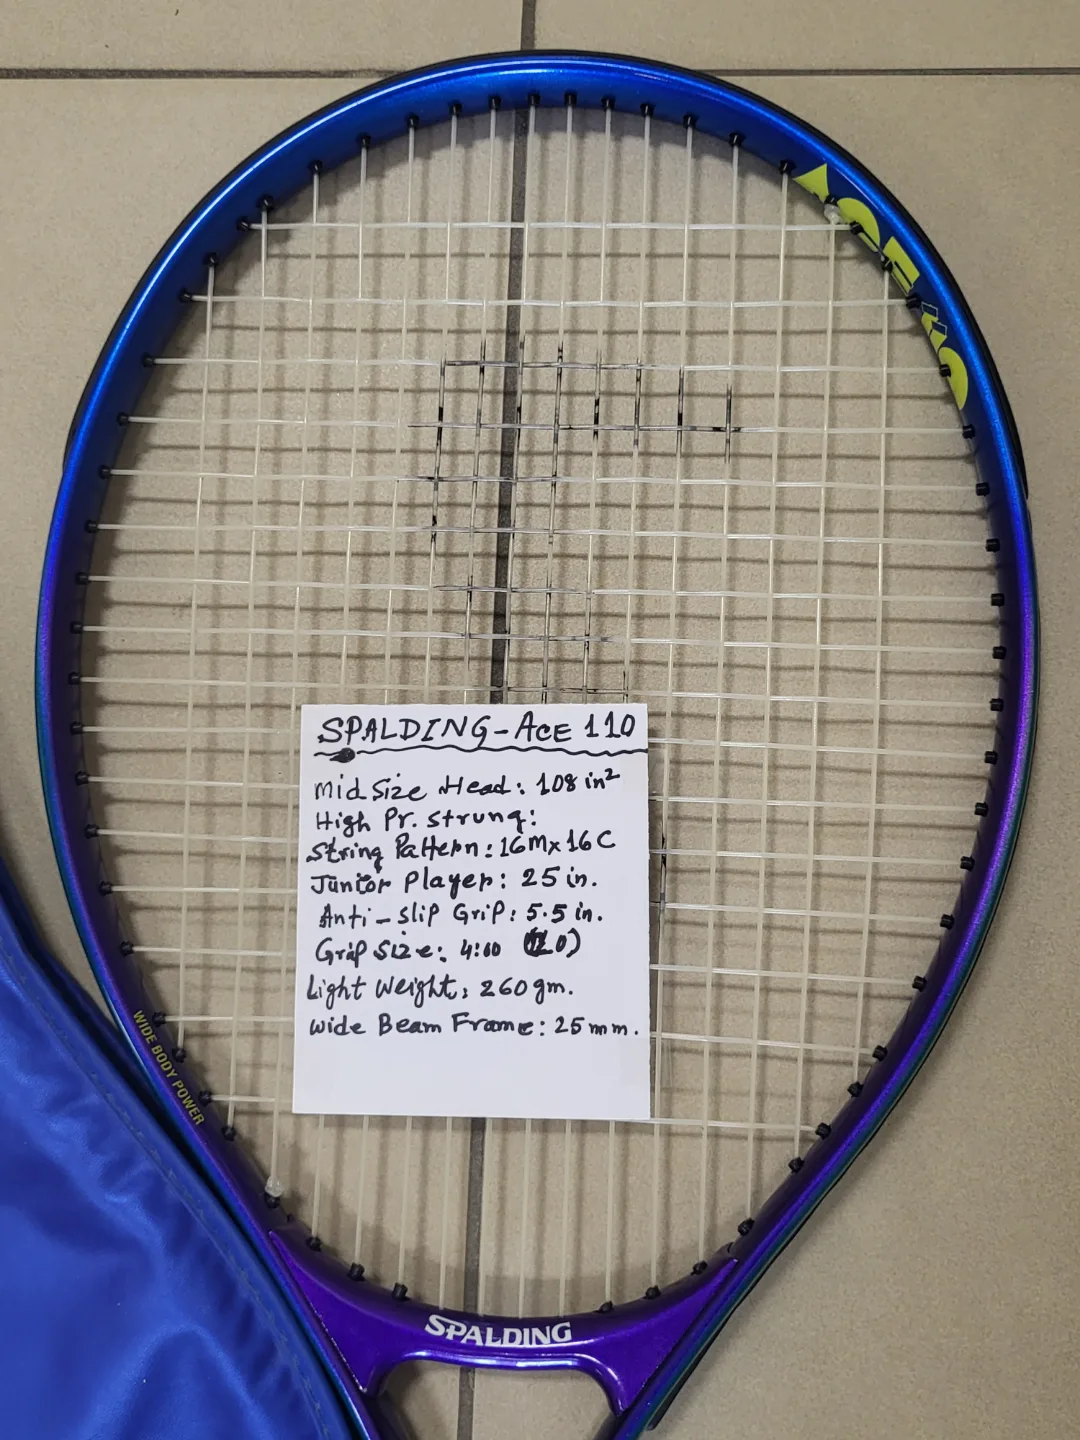 ACE 110
SPALDING-ACE 110
Mid Size Head: 108 in²
High Pr. Strung:
String Pattern: 16M x 16C
Junior Player: 25 in.
Anti-slip Grip: 5.5 in.
Grip Size: 4:00 (L0)
Light Weight: 260 gm.
Wide Beam Frame: 25 mm.
WIDE BODY POWER
SPALDING